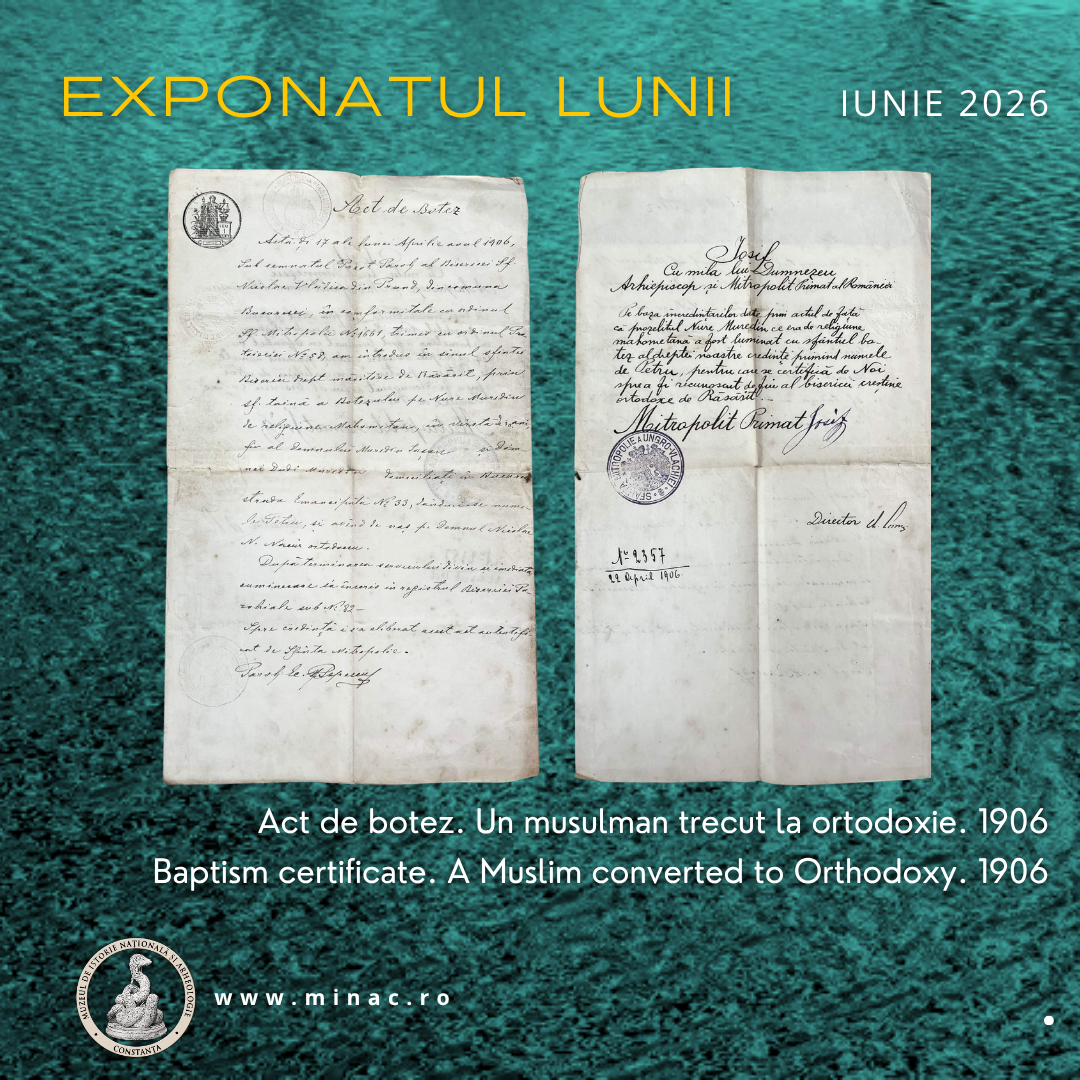 EXPONATUL LUNII
IUNIE 2026
Act de Botez
Astă-di 17 ale lunei Aprilie anul 1906,
Sub semnatul Preot Paroh al Bisericei Sf.
Nicolae Vlădica din Prund, din comuna
Bucuresci, in conformitate cu ordinul
Sf. Mitropolii No. 1661, trimes cu ordinul
No. 58, am introdus în sinul sfintei
Biserici drept măritóre de Răsărit, prin
sf. taină a Botezului pe Nure Muredin
de religiune Mahometană, in vârstă de ani,
fiu al Domnului Muredin și Dom
nei Muredin domiciliați in Bucuresci
strada Emancipata No. 33, dându-i-se nume
le Petru, și avênd de naș pe Domnul Nicolae
N. ortodocsu.
După terminarea serviciului divin și
cuminecare s'a inscris in registrul Bisericei Pa
rohiale sub No. 32-
Spre credință s'a eliberat acest act autentifi
cat de Sfânta Mitropolie.
Paroh Ec. Popescu
Iosif
Cu mila lui Dumnezeu
Arhiepiscop și Mitropolit Primat al României
Pe baza incredintarilor date prin actul de fată
că prozelitul Nure Muredin ce era de religiune
mahometana a fost luminat cu sfântul bo-
tez al dreptei noastre credințe primind numele
de Petru, pentru care se certifică de Noi
spre a fi recunoscut de fiu al bisericii creștine
ortodoxe de Răsărit.
Mitropolit Primat Iosif
SFÂNTA MITROPOLIE A UNGRO-VLACHIEI
Director
No 2357
22 April 1906
Act de botez. Un musulman trecut la ortodoxie. 1906
Baptism certificate. A Muslim converted to Orthodoxy. 1906
MUZEUL DE ISTORIE NAȚIONALĂ ȘI ARHEOLOGIE
CONSTANȚA
www.minac.ro